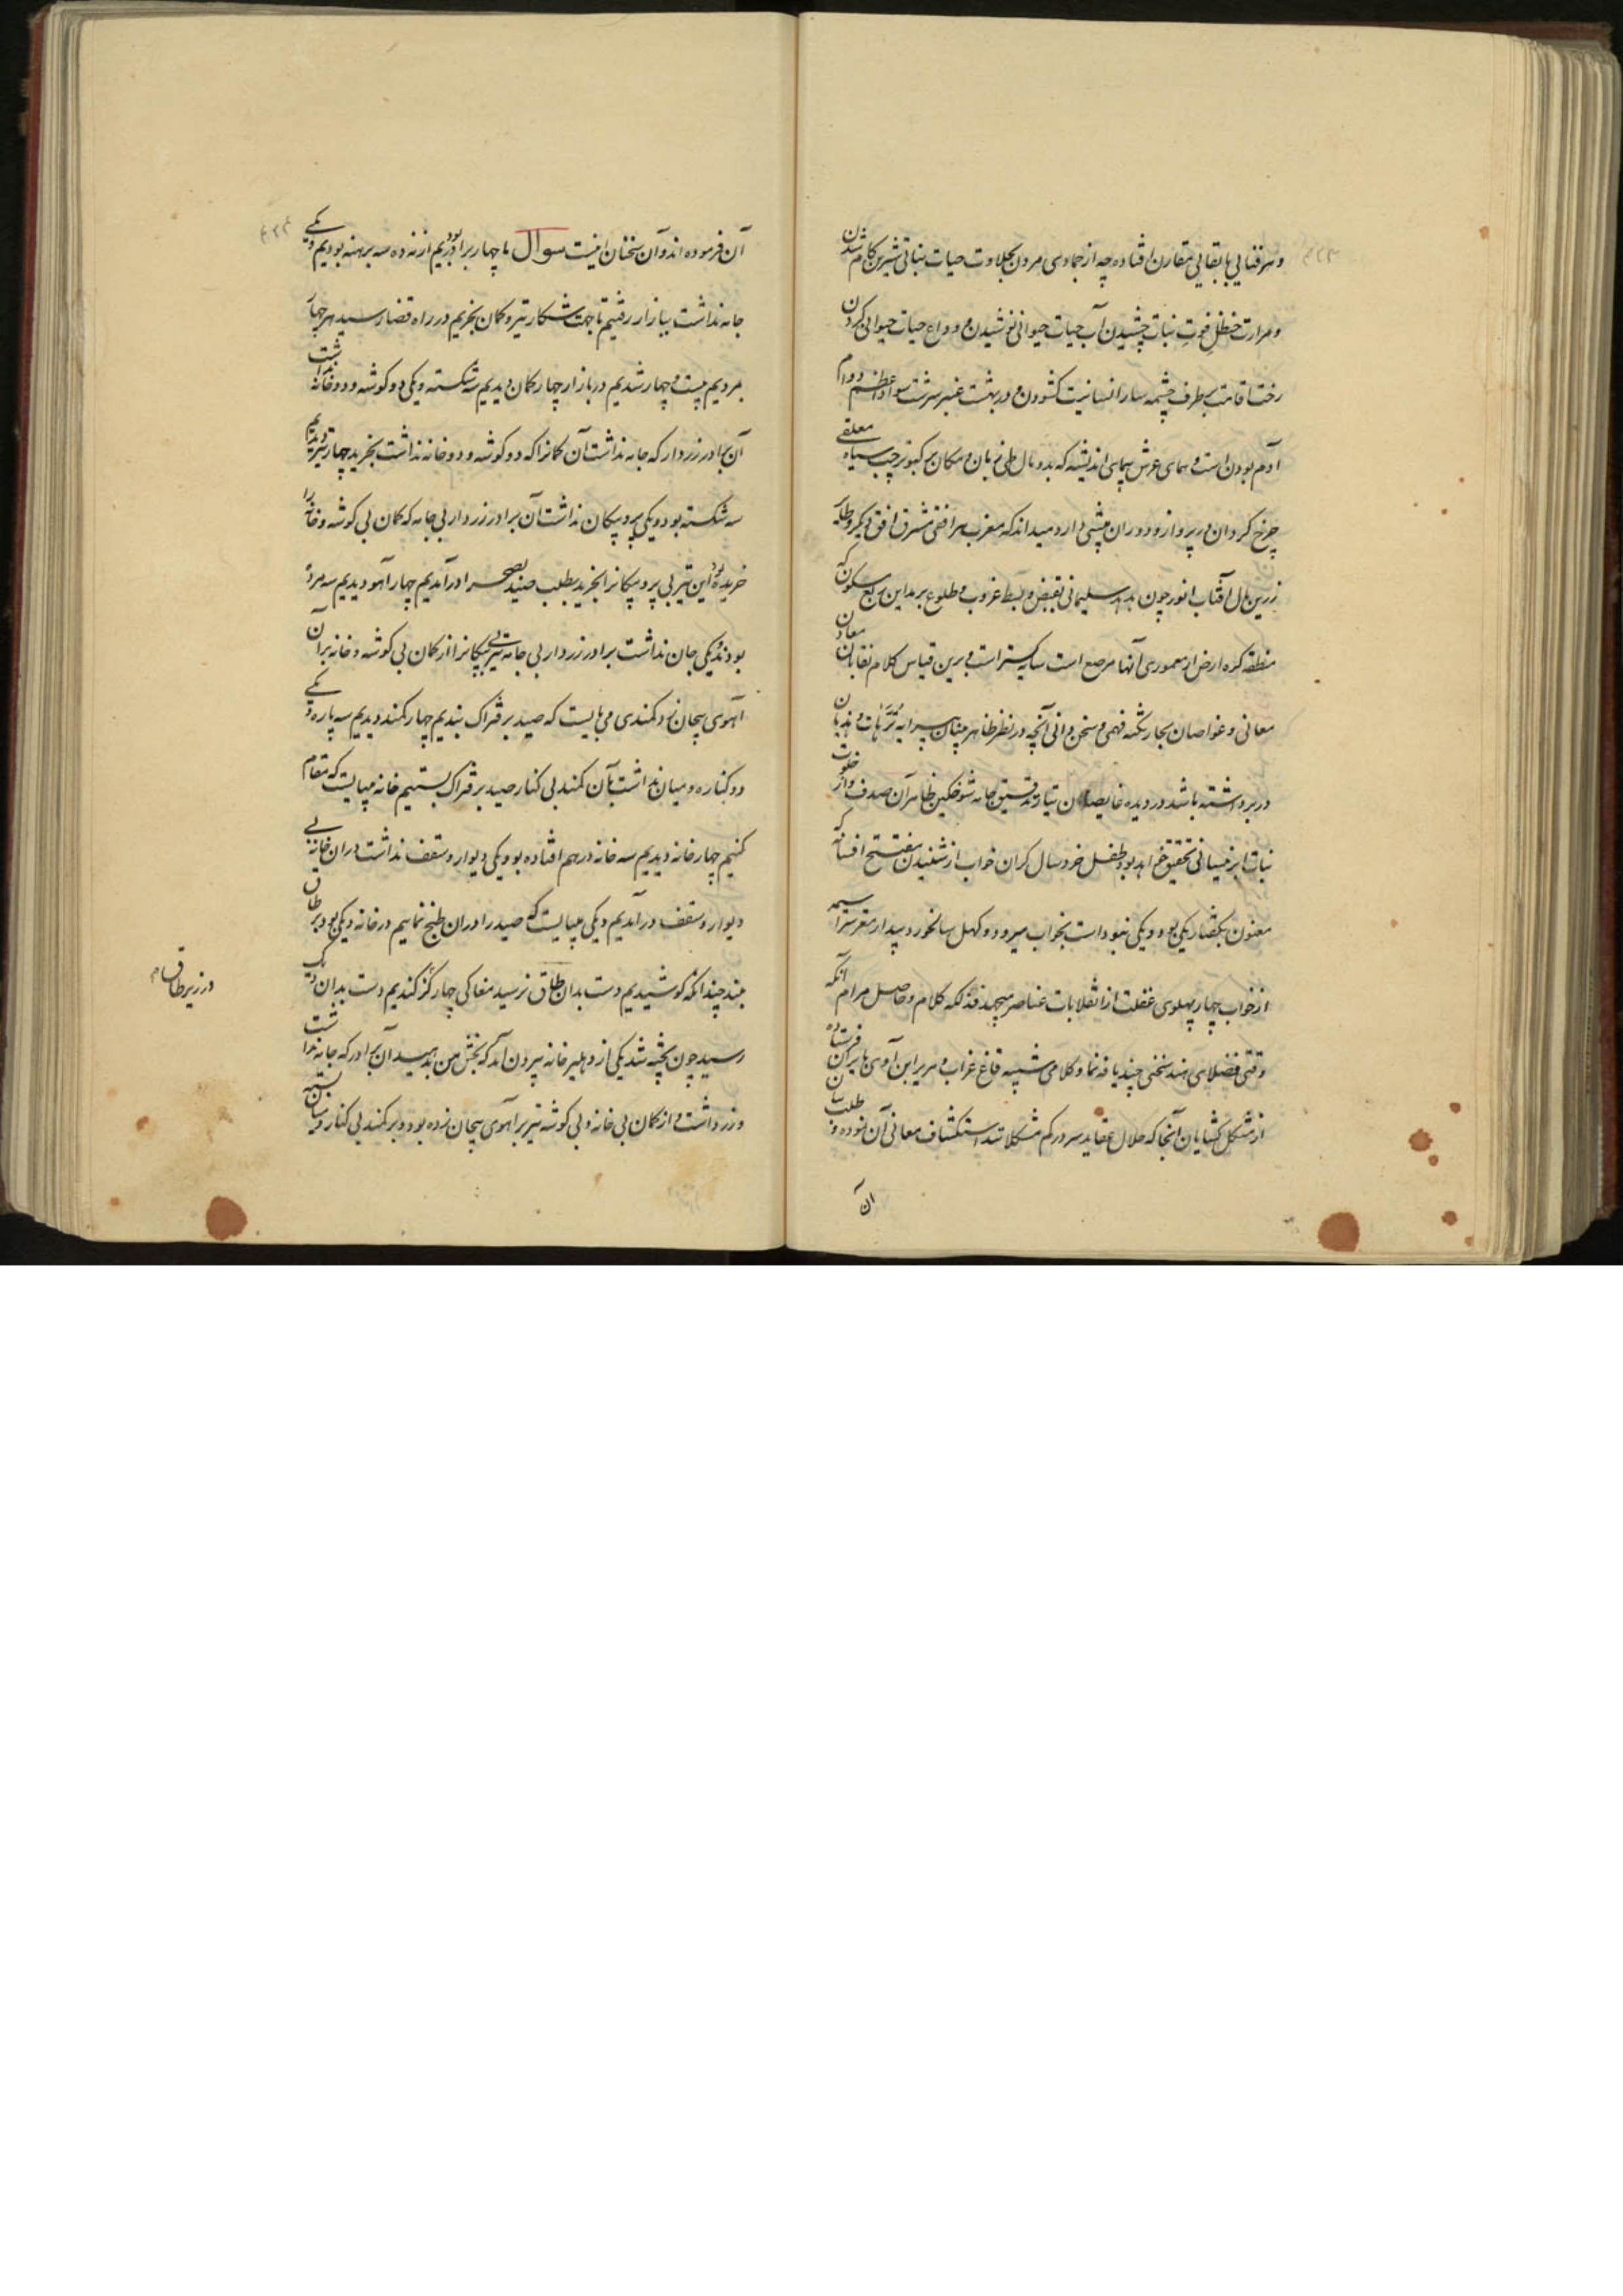 و هر فنایی با بقایی مقارن افتاده چه از جمادی مردن بحلاوت حیات نباتی شیرین کام شدن
و مرارت حنظل فوت نبات چشیدن آب حیات حیوانی نوشیدن و وداع حیات حیوانی کردن
رخت اقامت بطرف چشمه سار انسانیت کشودن در بهشت عنبر سرشت سواد اعظم دوام
آدم بودن است و همای عرش پیمای اندیشه که بدو بال طی زمان و مکان کبوتر سیاه معلقی
چرخ کردان در پرواز و دوران پیشی دارد میداند که مغرب هر افقی مشرق افق دیگر و طایر
زرین بال آفتاب انور چون هدهد سلیمانی بقبض و بسط غروب و طلوع بر مدار این ربع مسکون که
منطقه کره ارض از معموری آنها مرصع است سایه کستر است برین قیاس کلام نقابان معادن
معانی و غواصان بحار نکته فهمی و سخن دانی آنچه در نظر ظاهر بینان پیرایه ترهات و هذیان
در بر داشته باشد در دیده غایصان تیار تدقیق جامه شوخکین ظاهر آن صدف وار خلوت
نبات ابر نیسانی تحقیق خواهد بود طفل خردسال کران خواب از شنیدن مفتتح افسانه که
معنون بگفتار یکی بود و یکی نبود است بخواب میرود و کهل سالخورد بیدار مغز سراسیمه
از خواب چهار پهلوی غفلت از انقلابات عناصر میجهد فذلکه کلام و حاصل مرام آنکه
وقتی فضلای هند سخنی چند یافه نما و کلامی شبیه قاغ غراب و هریر ابن آوی بایران فرستاده
از مشکل کشایان آنجا که حلال عقاید سر در کم مشکلاتند استکشاف معانی آن نموده و طلب بیان
آن
آن فرموده اند و آن سخنان اینست سوال ما چهار برادر بودیم از نه ده سه برهنه بودیم و یکی
جامه نداشت ببازار رفتیم تا جهت شکار تیر و کمان بخریم در راه قضا رسید هر چهار
مردیم بیست و چهار شدیم در بازار چهار کمان دیدیم سه شکسته و یکی دو کوشه و دو خانه نداشت
آن برادر زردار که جامه نداشت آن کمانرا که دو کوشه و دو خانه نداشت بخرید چهار تیر دیدیم
سه شکسته بود و یکی پر و پیکان نداشت آن برادر زردار بی جامه که کمان بی کوشه و خانه را
خریده بود این تیر بی پر و پیکانرا بخرید بطلب صید بصحرا در آمدیم چهار آهو دیدیم سه مرده
بودند و یکی جان نداشت برادر زردار بی جامه تیر بی پیکانرا از کمان بی کوشه و خانه بر آن
آهوی بیجان زد کمندی می بایست که صید بر فتراک بندیم چهار کمند دیدیم سه پاره و یکی
دو کناره و میان نداشت بآن کمند بی کنار صید بر فتراک بستیم خانه میبایست که مقام
کنیم چهار خانه دیدیم سه خانه در هم افتاده بود و یکی دیوار و سقف نداشت در آن خانه بی
دیوار و سقف در آمدیم دیکی میبایست که صید را در آن طبخ نماییم در خانه دیکی بود بر طاق
بلند چندانکه کوشیدیم دست بدان طاق نرسید مغاکی چهار گز کندیم دست بدان دیک
رسید چون پخته شد یکی از دهلیز خانه بیرون آمد که بخش من بدهید آن برادر که جامه نداشت
و زر داشت و از کمان بی خانه و بی کوشه تیر بر آهوی بیجان زده بود و بر کمند بی کنار و میان بسته
در زیر طاق